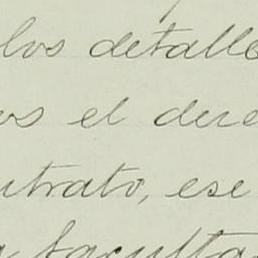 los detalle
os el dere
ntrato, ese
a faculta